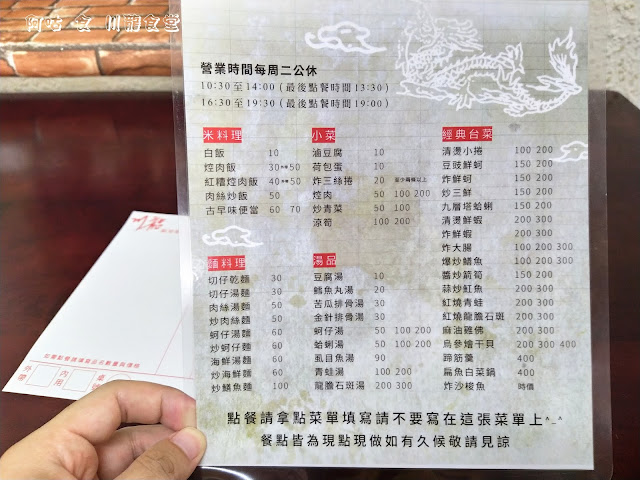 阿咕 食 川龍食堂
營業時間每周二公休
10:30 至 14:00 (最後點餐時間 13:30)
16:30 至 19:30 (最後點餐時間 19:00)
米料理
白飯 10
焢肉飯 30**50
紅糟焢肉飯 40**50
肉絲炒飯 50
古早味便當 60 70
麵料理
切仔乾麵 30
切仔湯麵 30
肉絲湯麵 50
炒肉絲麵 50
蚵仔湯麵 60
炒蚵仔麵 60
海鮮湯麵 60
炒海鮮麵 60
炒鱔魚麵 100
小菜
滷豆腐 10
荷包蛋 10
炸三絲捲 20 至少兩條以上
焢肉 50 100 200
炒青菜 50 100
涼筍 100 200
湯品
豆腐湯 30
鱈魚丸湯 20
苦瓜排骨湯 30
金針排骨湯 30
蚵仔湯 50 100 200
蛤蜊湯 50 100 200
虱目魚湯 90
青蛙湯 100 200
龍膽石斑湯 200 300
經典台菜
清燙小捲 100 200
豆豉鮮蚵 150 200
炸鮮蚵 150 200
炒三鮮 150 200
九層塔蛤蜊 150 200
清燙鮮蝦 200 300
炸鮮蝦 200 300
炸大腸 100 200 300
爆炒鱔魚 100 200 300
醬炒箭筍 150 200
蒜炒魟魚 200 300
紅燒青蛙 200 300
紅燒龍膽石斑 200 300
麻油雞佛 200 300
烏參燴干貝 200 300 400
蹄筋羹 400
扁魚白菜鍋 400
炸沙梭魚 時價
點餐請拿點菜單填寫請不要寫在這張菜單上^_^
餐點皆為現點現做如有久候敬請見諒
外帶
內用
桌